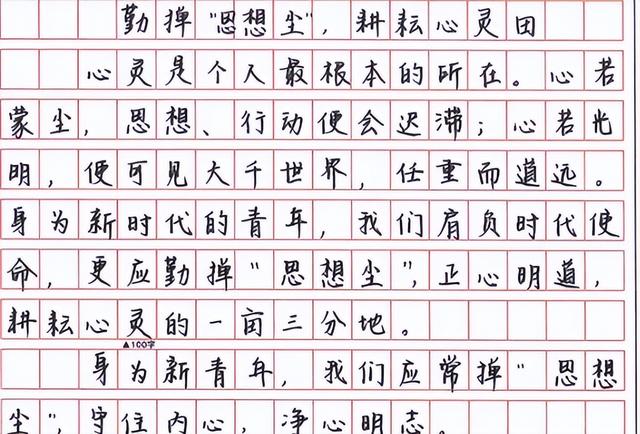 勤掸“思想尘”，耕耘心灵田
心灵是个人最根本的所在。心若
蒙尘，思想、行动便会迟滞；心若光
明，便可见大千世界，任重而道远。
身为新时代的青年，我们肩负时代使
命，更应勤掸“思想尘”，正心明道，
耕耘心灵的一亩三分地。
▲100字
身为新青年，我们应常掸“思想
尘”，守住内心，净心明志。